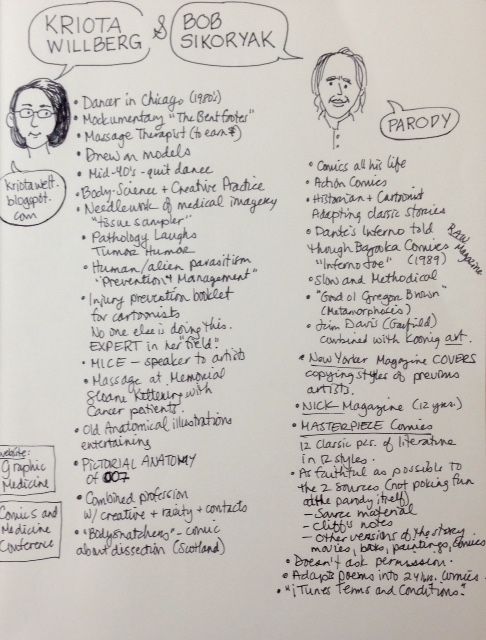 KRIOTA
WILLBERG
&
BOB
SIKORYAK
kriotawelt.
blogspot.
com
• Dancer in Chicago (1980's)
• Mockumentary "The Bentfootes"
• Massage Therapist (to earn $)
• Drew on models
• Mid-40's - quit dance
• Body-Science + Creative Practice
• Needlework of medical imagery
"tissue sampler"
• Pathology Laughs
Tumor Humor
• Human/alien parasitism
"Prevention & Management"
• Injury prevention booklet
for cartoonists
No one else is doing this.
EXPERT in her "field".
• MICE — speaker to artists
• Massage at Memorial
Sloane Kettering with
Cancer patients.
• Old Anatomical illustrations
entertaining
• PICTORIAL ANATOMY
of 007
• Combined profession
w/ creative + rarity + contacts
• "Bodysnatchers" - comic
about dissection (Scotland)
website:
Graphic
Medicine
Comics and
Medicine
Conference
PARODY
• Comics all his life
• Action Comics
• Historian + Cartoonist
Adapting classic stories
• Dante's Inferno told
though Bazooka Comics
"Inferno Joe" (1989)
RAW
Magazine
• Slow and Methodical
• "Good ol Gregor Brown"
(Metamorphosis)
• Jim Davis (Garfield)
combined with Koonig art.
• New Yorker Magazine COVERS
copying styles of previous
artists.
• NICK Magazine (12 yrs.)
• MASTERPIECE Comics
12 Classic pcs. of literature
in 12 styles.
• As faithful as possible to
the 2 sources (not poking fun
at the parody itself)
— Source material
— Cliff's notes
— Other versions of the story
movies, books, paintings, comics
• Doesn't ask permission.
• Adapts poems into 24 hr. comics.
• "iTunes Terms and Conditions."